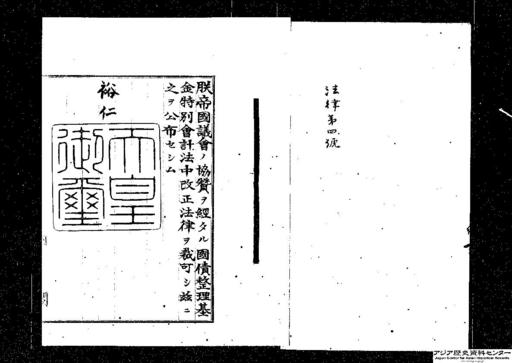 法律第四號
朕帝國議會ノ協贊ヲ經タル國債整理基
金特別會計法中改正法律ヲ裁可シ玆ニ
之ヲ公布セシム
裕仁
天皇
御璽
アジア歴史資料センター
Japan Center for Asian Historical Records